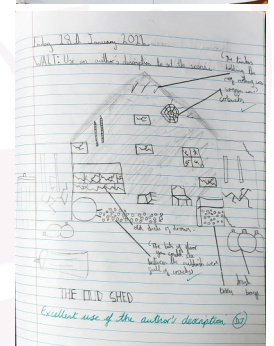 Friday 28th January 2011
WALT: Use an author's description to set the scene.
The timbers
holding the
roof nothing was
cobwebs
old chests of drawers.
The bits of floor
you could see
between the rubbish were
full of cracks
THE OLD SHED
Excellent use of the author's description